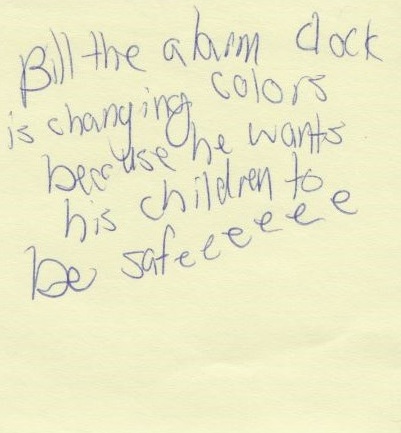 Bill the alarm clock
is changing colors
because he wants
his children to
be safeeeeeee